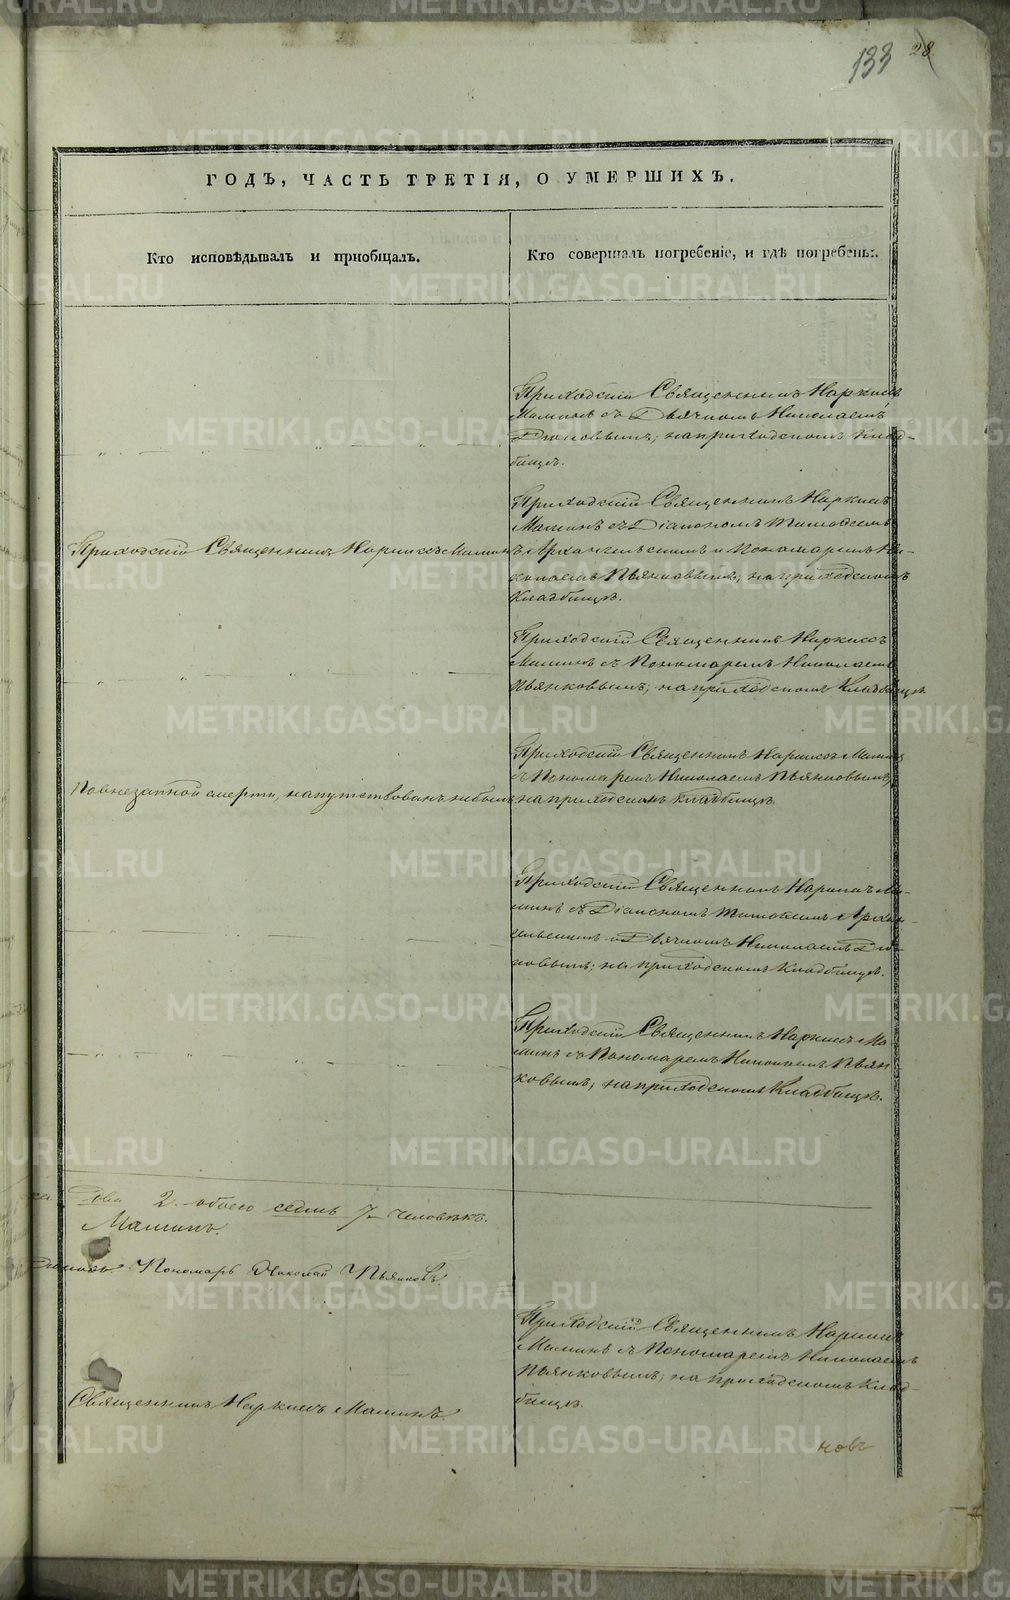 133 28
ГОДЪ, ЧАСТЬ ТРЕТІЯ, О УМЕРШИХЪ.
Кто исповѣдывалъ и пріобщалъ.
Кто совершалъ погребеніе, и гдѣ погребены.
Приходскій Священникъ Наркисъ
Маминъ съ Дьячкомъ Николаемъ
на приходскомъ клад-
бищѣ.
Приходскій Священникъ Наркисъ Маминъ
Приходскій Священникъ Наркисъ
Маминъ съ Діакономъ Тимофеемъ
Архангельскимъ и Пономаремъ Ни-
колаемъ Пьянковымъ; на приходскомъ
Кладбищѣ.
Приходскій Священникъ Наркисъ
Маминъ съ Пономаремъ Николаемъ
Пьянковымъ; на приходскомъ Кладбищѣ
По внезапной смерти, напутствованъ не былъ.
Приходскій Священникъ Наркисъ Маминъ
съ Пономаремъ Николаемъ Пьянковымъ,
на приходскомъ кладбищѣ.
Приходскій Священникъ Наркисъ Ма-
минъ съ Діакономъ ТимофеемъАрхан-
гельскимъ и Дьячкомъ Николаемъ
новымъ; на приходскомъ Кладбищѣ.
Приходскій Священникъ Наркисъ Ма-
минъ съ Пономаремъ Николаемъ Пьян
ковымъ, на приходскомъ Кладбищѣ.
2. обоего седмь 7 человѣкъ.
Маминъ.
Пономарь Николай Пьянковъ.
Приходскій Священникъ Наркисъ
Маминъ съ Пономаремъ Николаемъ
Пьянковымъ; на приходскомъ Клад-
бищѣ.
Священникъ Наркисъ Маминъ.
новъ
METRIKI.GASO-URAL.RU